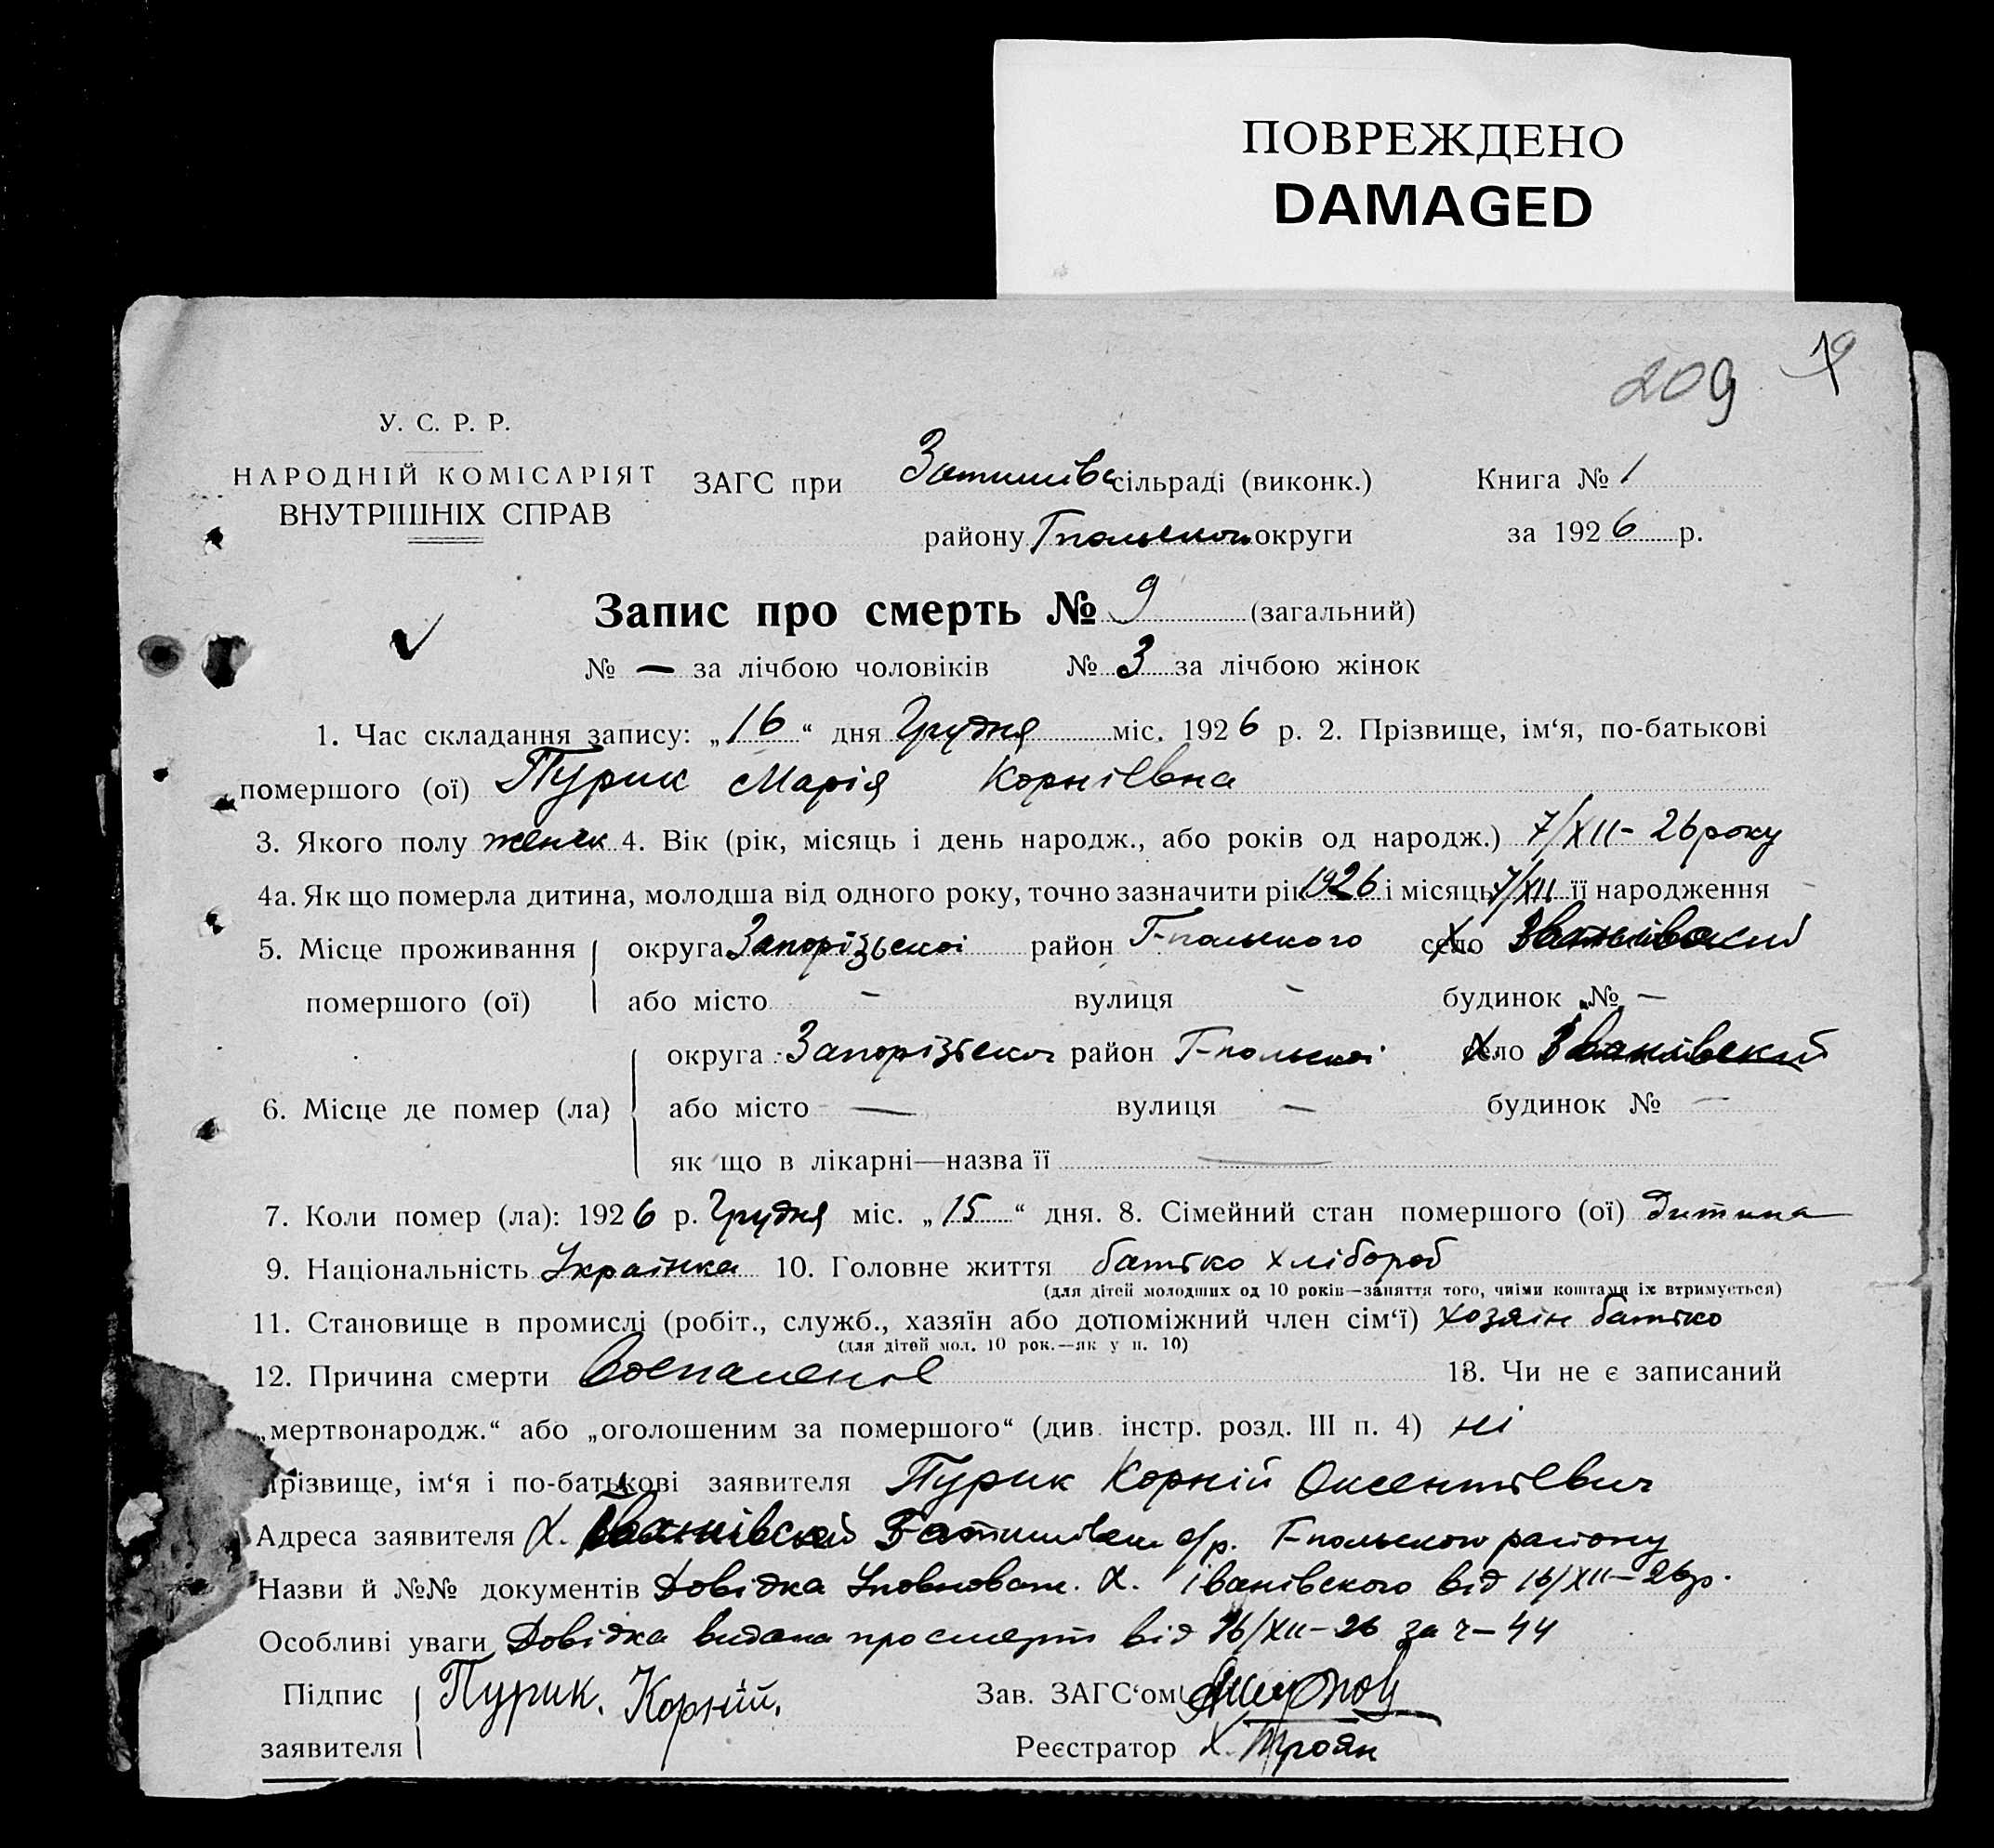 ПОВРЕЖДЕНО
DAMAGED
209 19
У. С. Р. Р.
НАРОДНІЙ КОМІСАРІЯТ
ВНУТРІШНІХ СПРАВ
ЗАГС при Затишівс сільраді (виконк.) Книга № 1
району Гпольської округи за 1926 р.
Запис про смерть № 9 (загальний)
№ — за лічбою чоловіків № 3 за лічбою жінок
1. Час складання запису: „16“ дня Грудня міс. 1926 р. 2. Прізвище, ім‘я, по-батькові
помершого (ої) Пурик Марія Корніївна
3. Якого полу 4. Вік (рік, місяць і день народж., або років од народж.) 7/XII- 26 року
4а. Як що померла дитина, молодша від одного року, точно зазначити рік 1926 і місяць 7/XII її народження
5. Місце проживання округа Запорізської район Г-польского село
помершого (ої) або місто - вулиця - будинок № —
округа Запорізської район Г-польскої село
6. Місце де помер (ла) або місто — вулиця — будинок № —
як що в лікарні—назва її —
7. Коли помер (ла): 1926 р. Грудня міс. „15“ дня. 8. Сімейний стан помершого (ої) дитина
9. Національність Українка 10. Головне життя батько хлібороб
(для дітей молодших од 10 років—заняття того, чиїми коштами їх втримується)
11. Становище в промислі (робіт., служб., хазяїн або допоміжний член сім‘ї) хозяін батько
(для дітей мол. 10 рок.—як у п. 10)
12. Причина смерти 13. Чи не є записаний
„мертвонародж.“ або „оголошеним за помершого“ (див. інстр. розд. III п. 4) ні
прізвище, ім‘я і по-батькові заявителя Пурик Корній Оксентієвич
Адреса заявителя х. с/р. Г-польского району
Назви й №№ документів Довідка Уповноваж. х. Іванівского від 16/XII-26 р.
Особливі уваги Довідка видана про смерть від 16/XII-26 за ч-44
Підпис Пурик. Корній. Зав. ЗАГС‘ом
заявителя Реєстратор Х. Троян